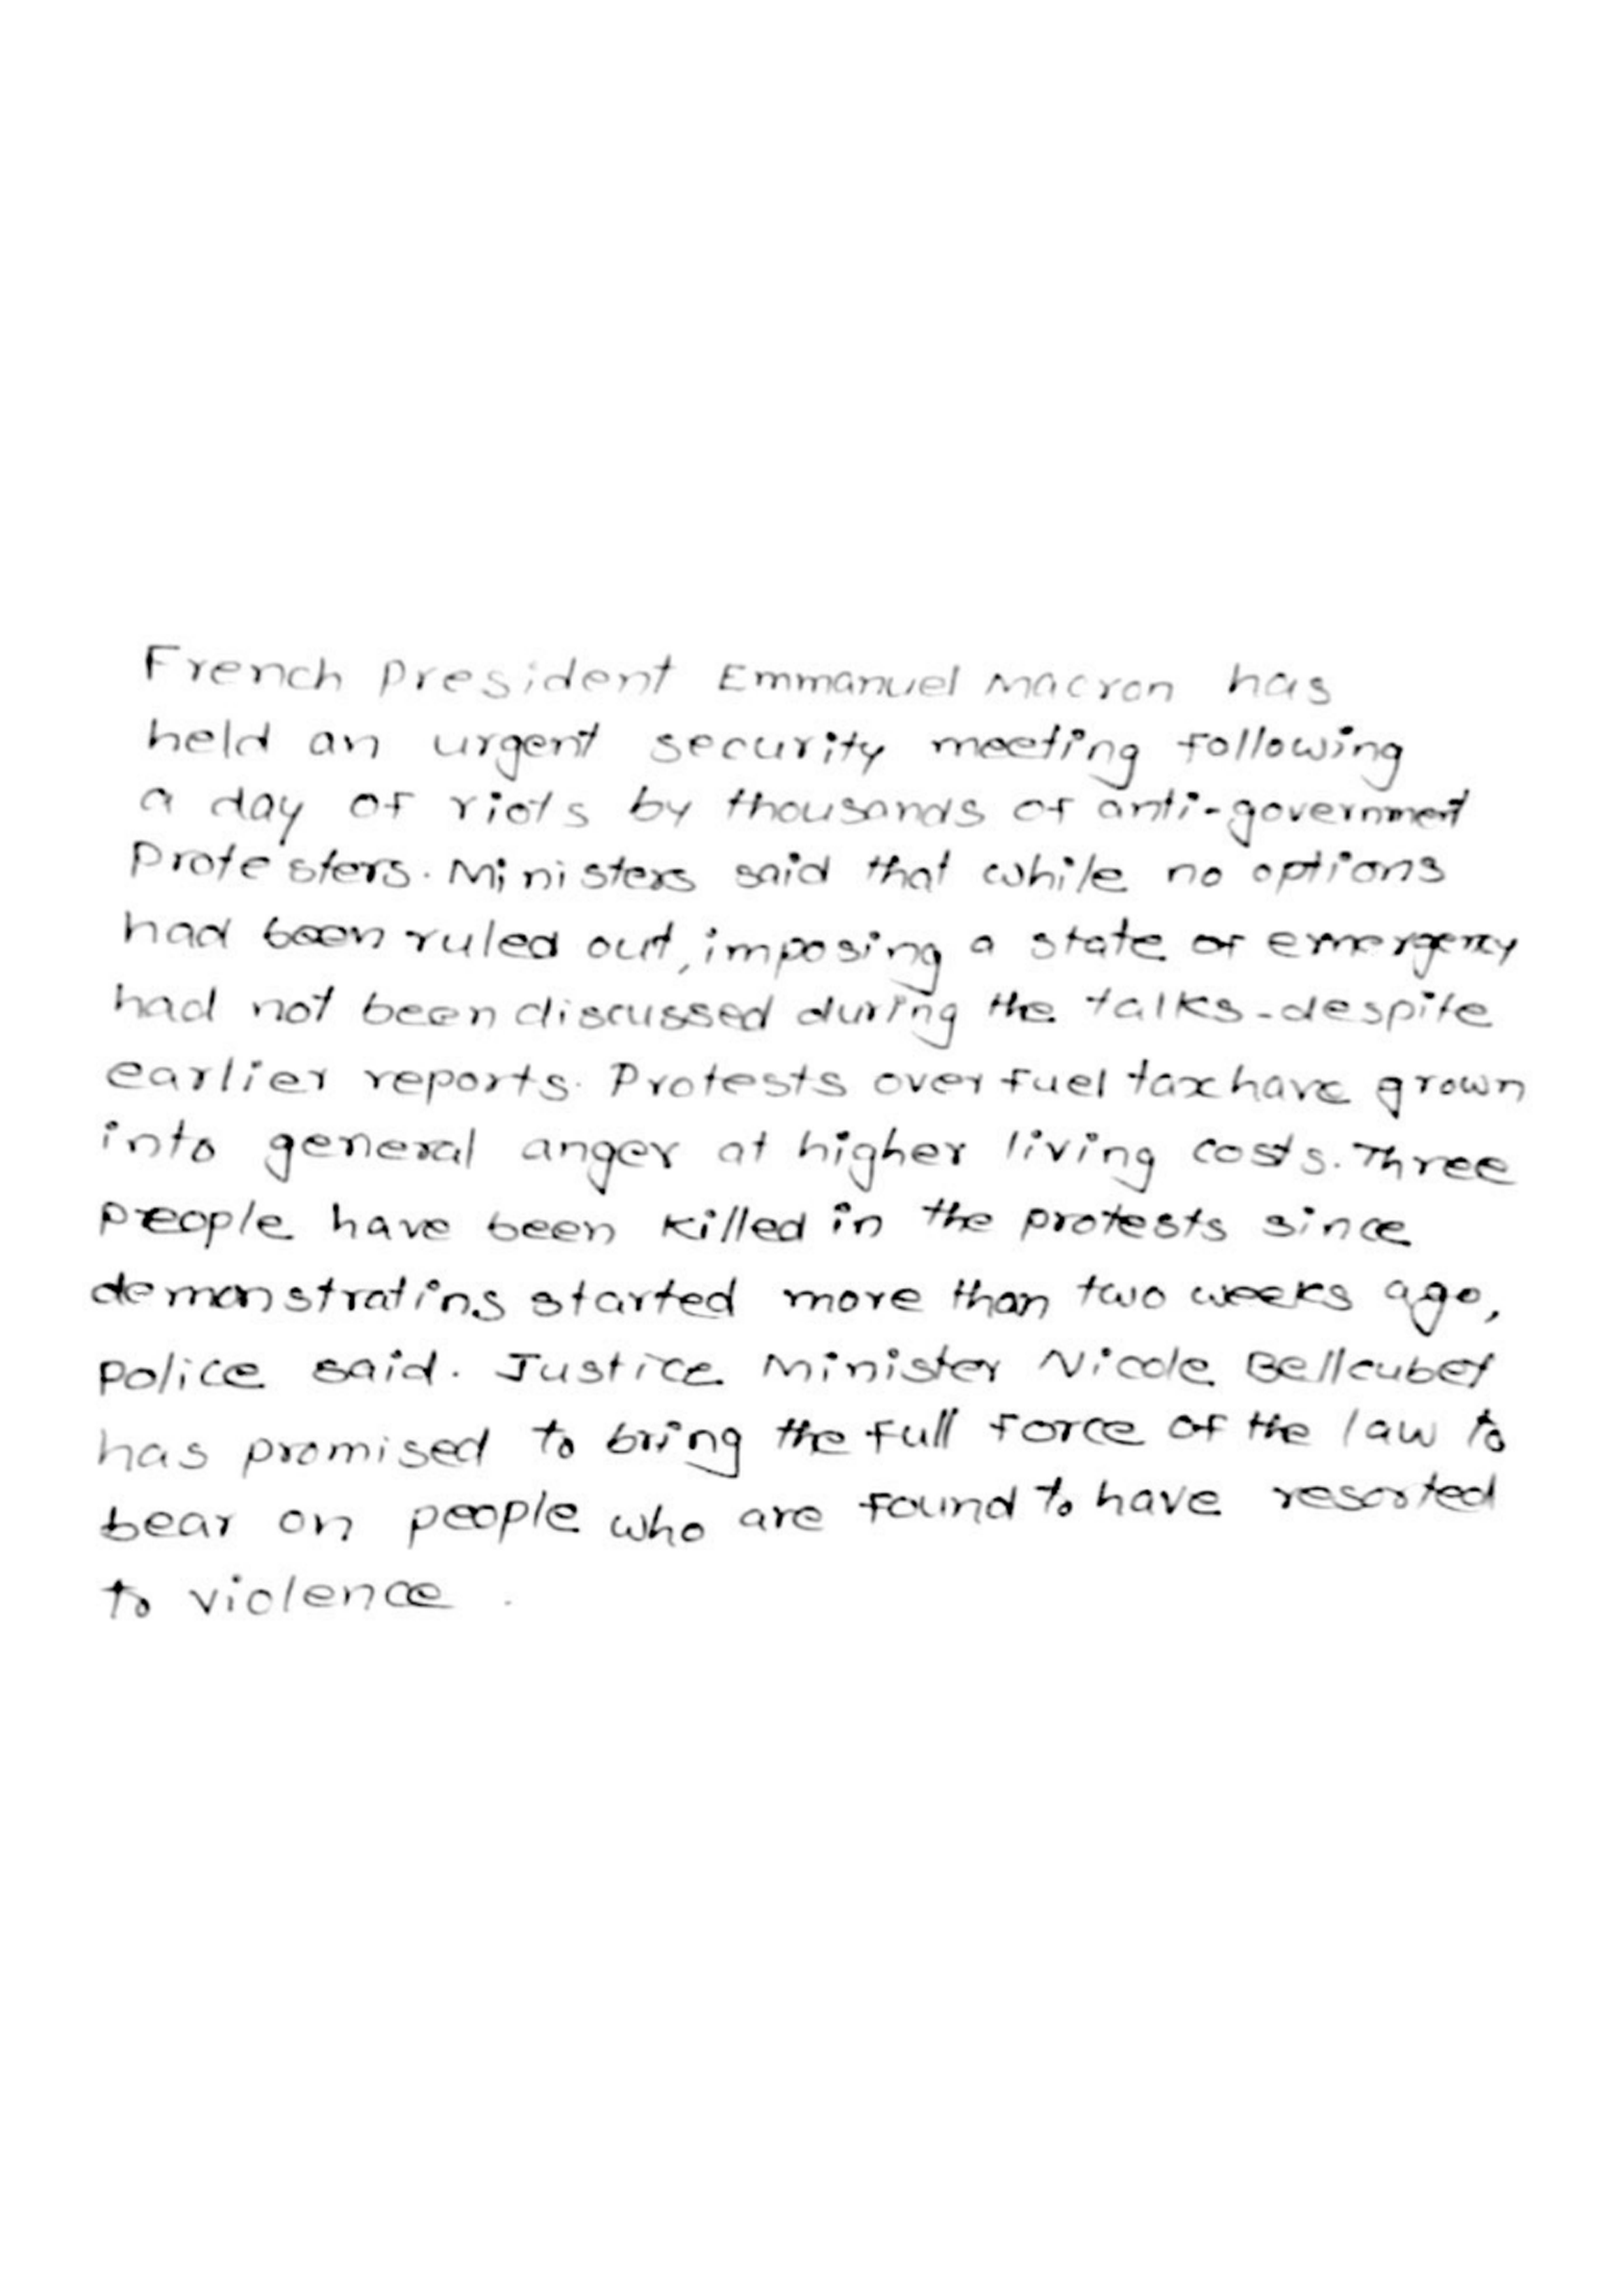 French President Emmanuel Macron has
held an urgent security meeting following
a day of riots by thousands of anti-government
Protesters. Ministers said that while no options
had been ruled out, imposing a state of emergency
had not been discussed during the talks-despite
earlier reports. Protests over fuel tax have grown
into general anger at higher living costs. Three
people have been killed in the protests since
demonstratins started more than two weeks ago,
police said. Justice Minister Nicole Bellcubet
has promised to bring the full force of the law to
bear on people who are found to have resorted
to violence .